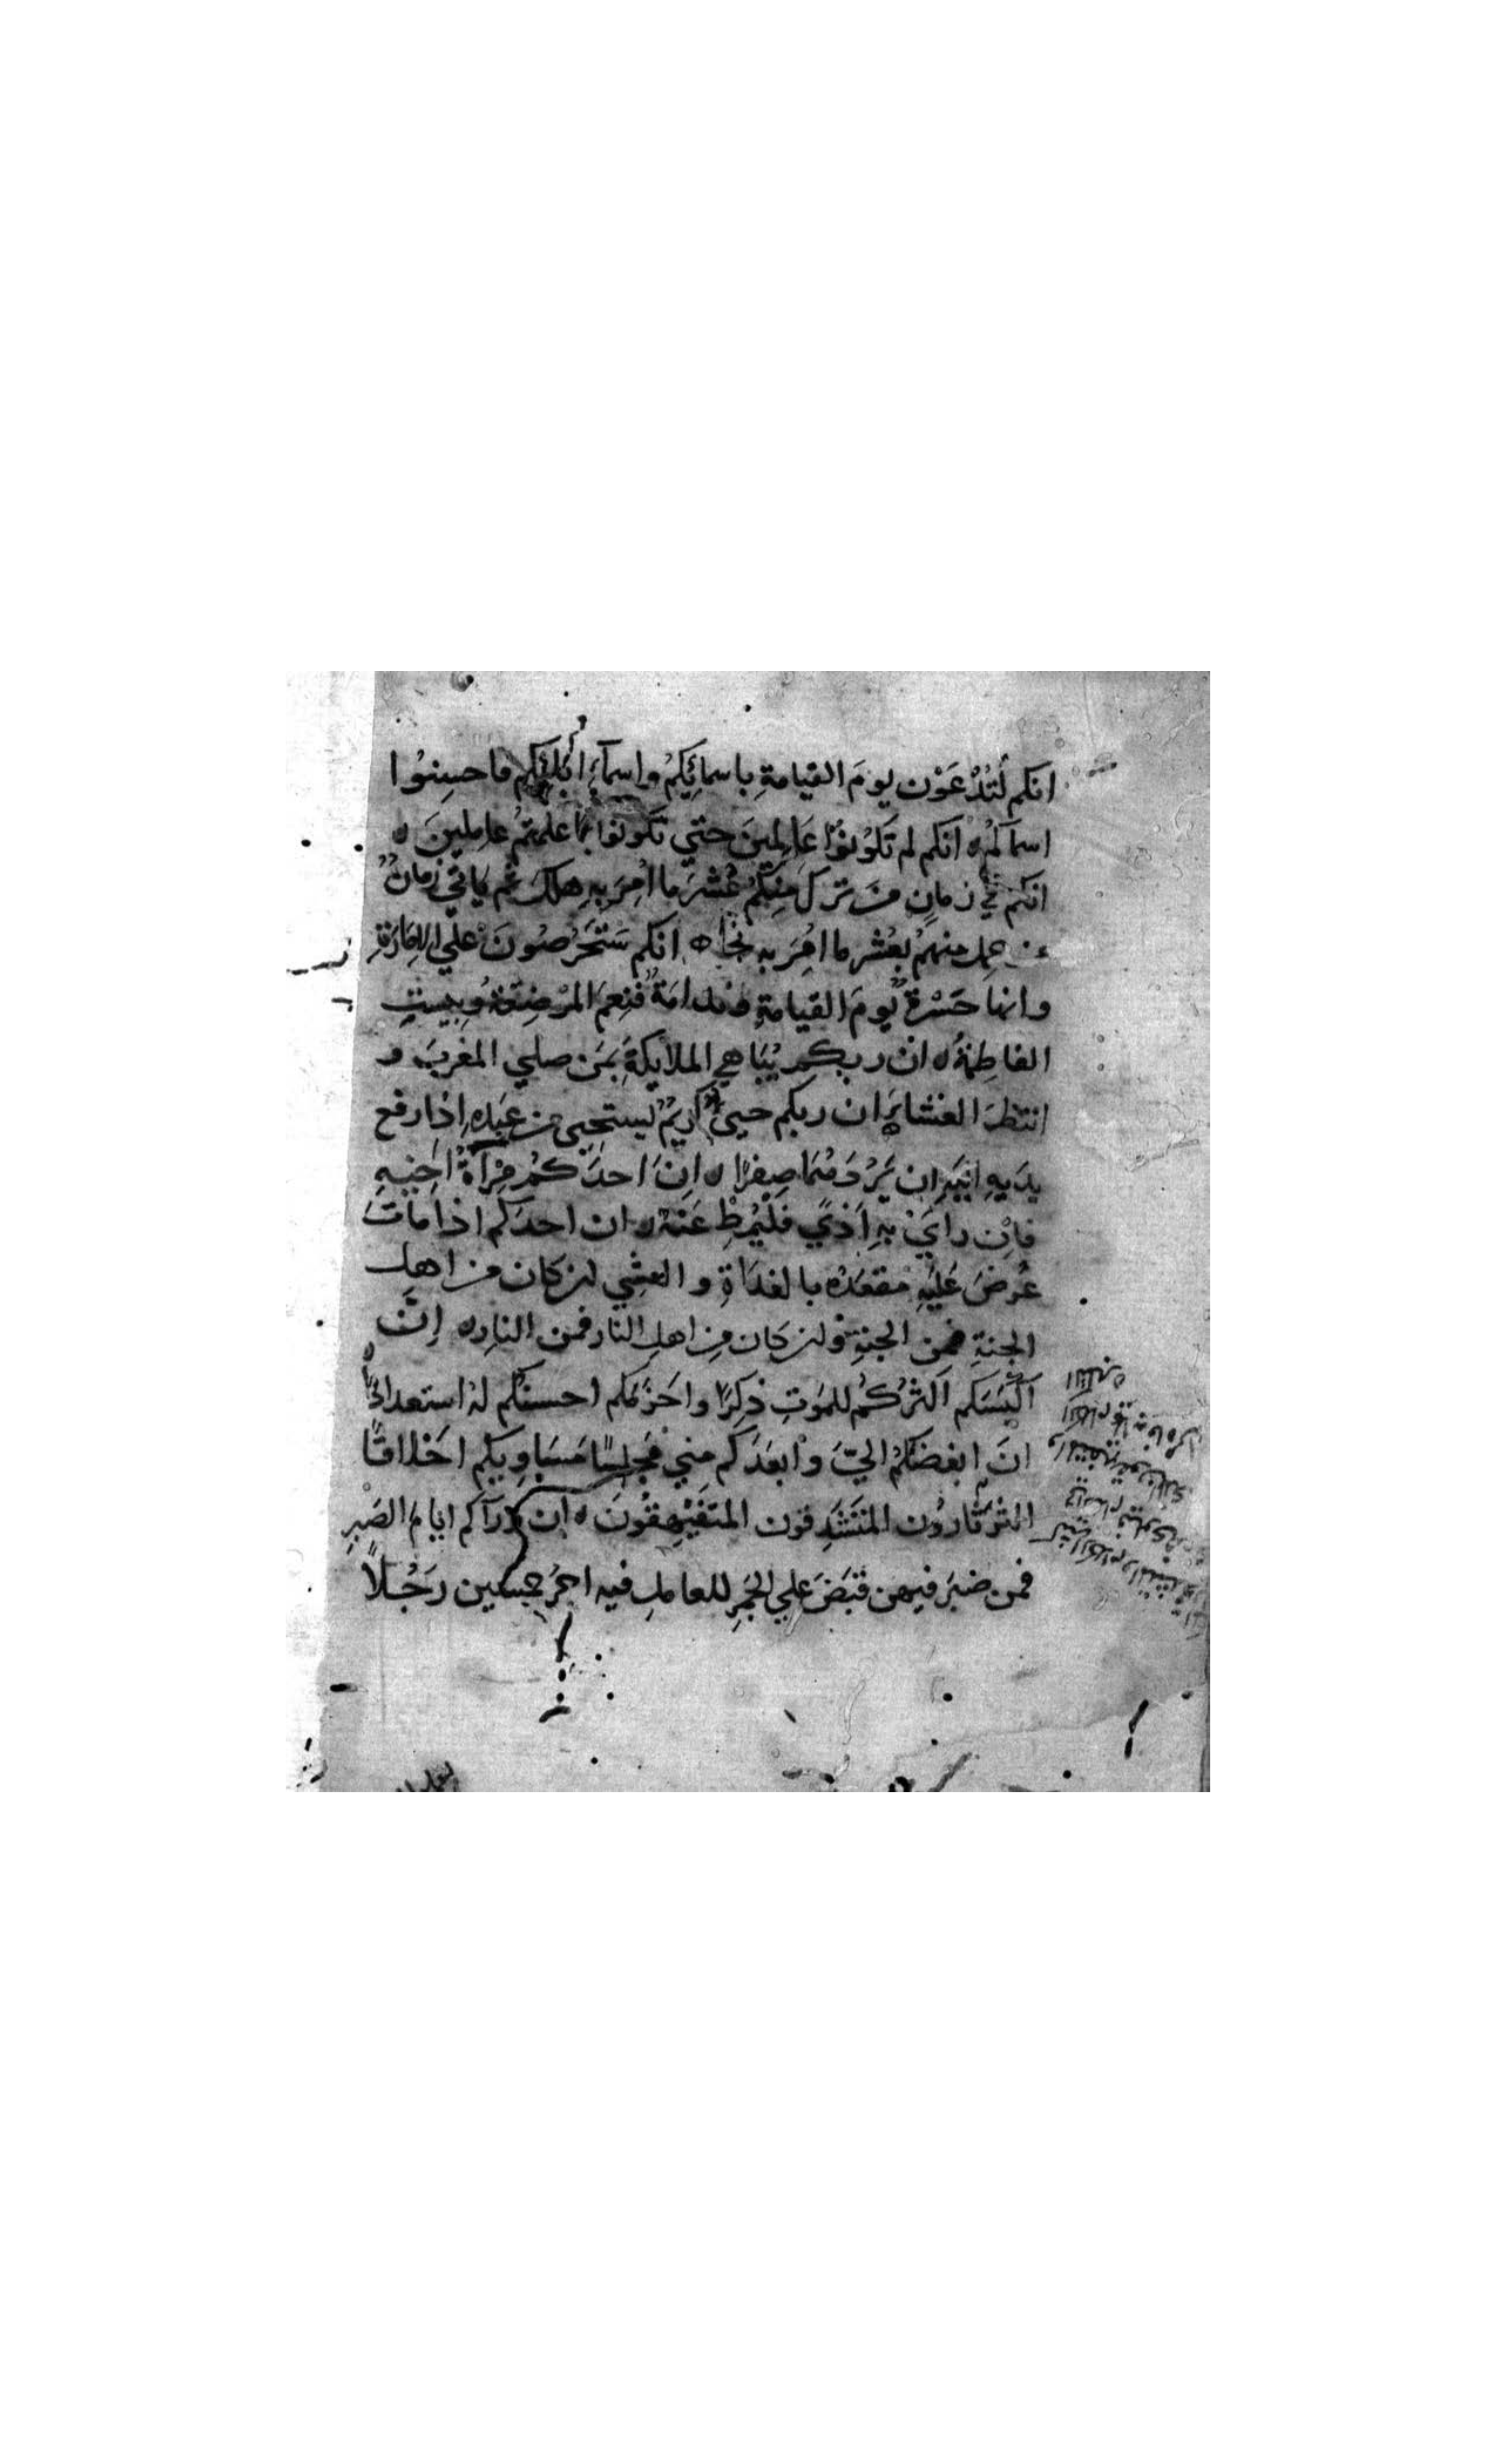 انكم لَتُدْعَوْن يومَ القيامةِ باسمائِكُم واسمآءِ ابائِكم فاحسِنُوا
اسماكُم ه انكم لم تكُونوُا عَالِمينَ حتي تكونوا بما علمتُم عاملينَ ه
انكم في زمانٍ من ترك منِكُم عُشْرَ ما اُمِرَ بهِ هلكَ ثم ياتي زمانٌ
من عمِل منهمُ بعُشر ما اُمِرَ به نجا ه انكم سَتَحْرِصُونَ علي الاِمارَةِ
وانها حَسْرةٌ يومَ القيامةِ وندامَةٌ فنِعمَ المرْضِعَةُ وبيستِ
الفاطِمَةُ ه ان ربكم يُبَاهي الملايكَةَ بمَن صلي المغربَ و
انتظرَ العشاء ه ان ربكم حييٌ كريمٌ ليستحيي من عَبْدهِ اذا رفع
يدَيهِ اليهِ ان يَرُدَهُمَا صِفرًا ه اِنَ احدَكُم مِرْآةُ اَخيهِ
فاِن رايَ بهِ اَذيً فَلْيُمِطْ عَنْهُ ه ان احدَكم اذا ماتَ
عُرِضَ عَلَيهِ مقعَدُه بالغدَاةِ والعشِي ان كان من اهلِ
الجنةِ فمن الجنةِ وان كان مِن اهلِ النار فمن النارِ ه اِنَّ
اَكْيَسَكم اكثرُكُم للموتِ ذِكرًا واحزَمَكم احسنُكم لهُ استعدادًا
انَ ابغضَكُم اليَّ وابعَدَكم مِني مَجلِسًا مَسَاوِيكم اخلاقًا
الثَرثارُون المتَشَدِقون المتَفَيْهِقُونَ ه ان ورآكم ايامَ الصَبْرِ
فمن صبرَ فيهن قبَضَ علي الجَمرِ للعاملِ فيه اجرُ خمسين رَجُلًا